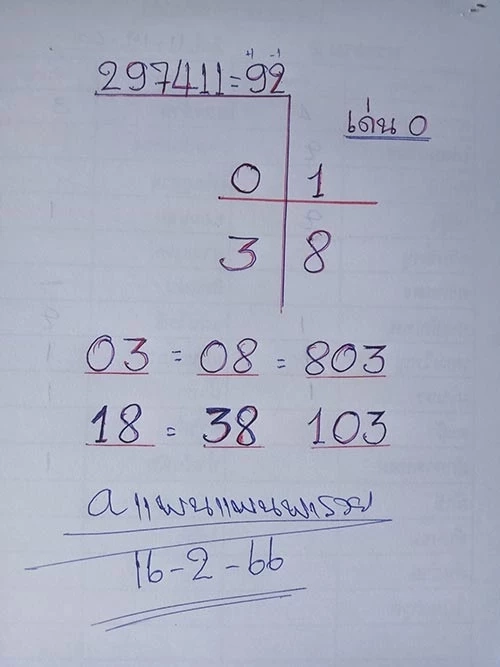 4 -1
297411=92
เด่น 0
0 1
3 8
03 = 08 = 803
18 = 38 103
a แพนแพนพารวย
16-2-66